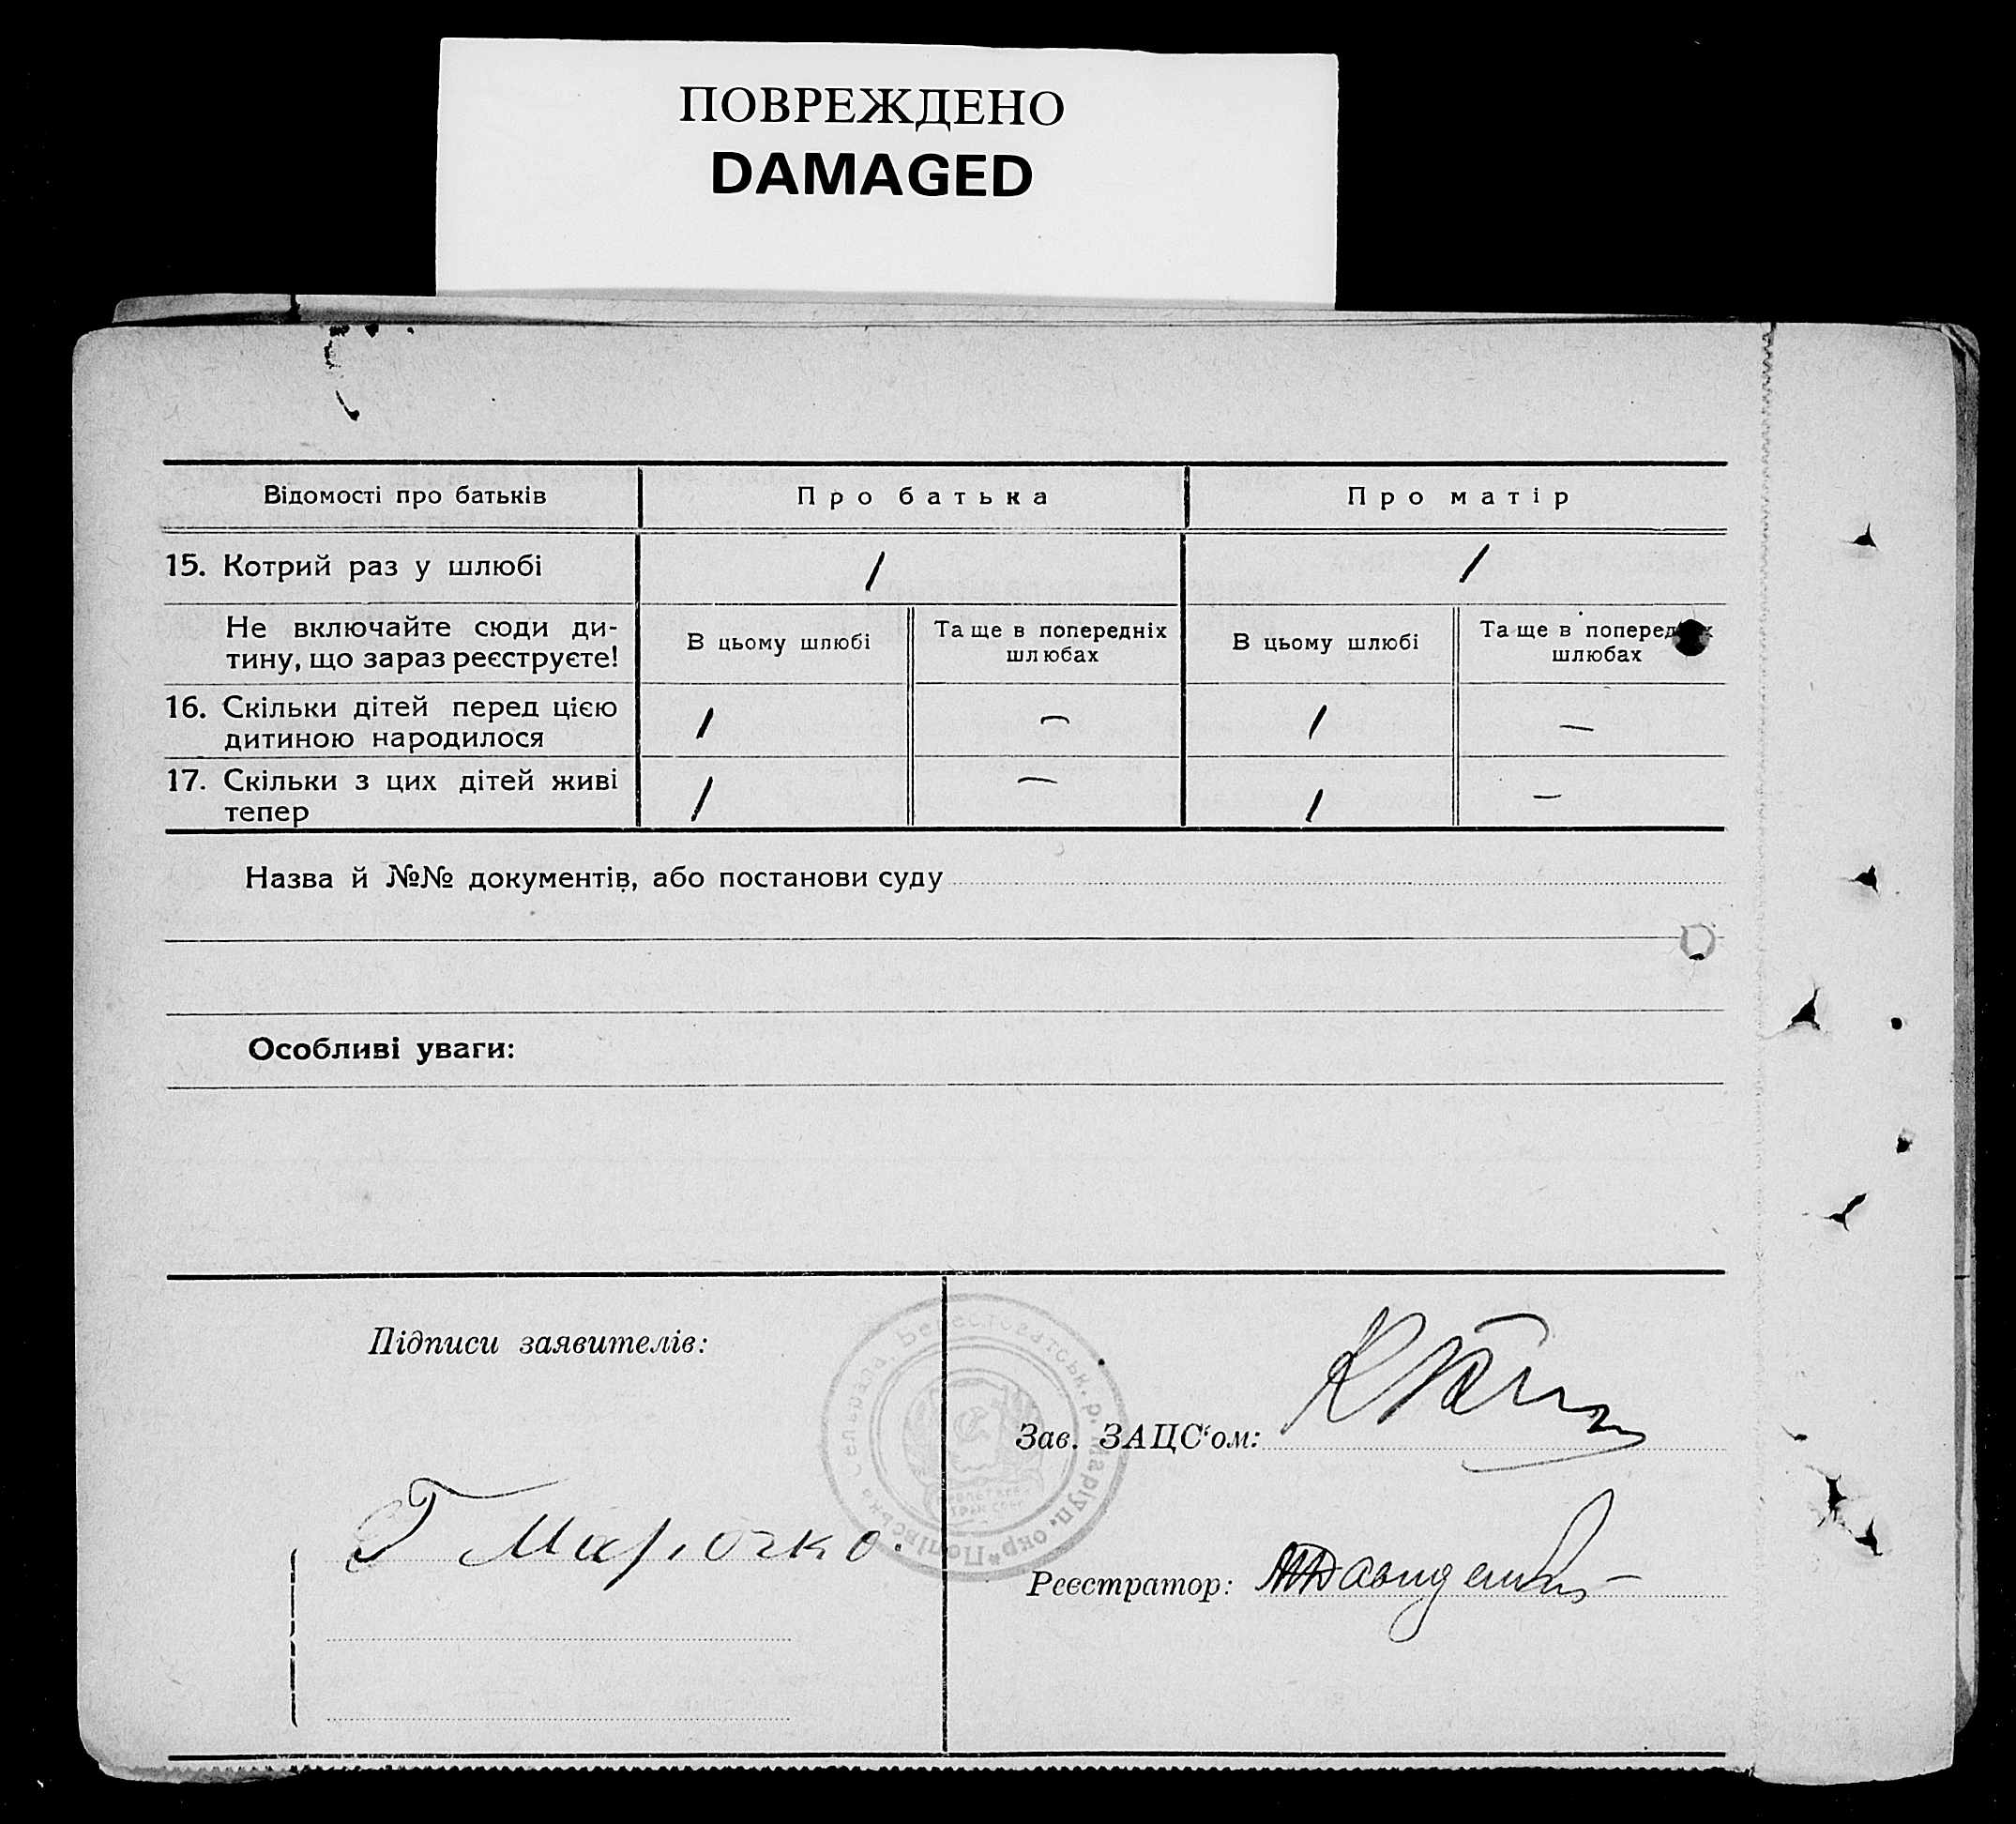 ПОВРЕЖДЕНО
DAMAGED
Відомості про батьків
Про батька
Про матір
15. Котрий раз у шлюбі
1
1
Не включайте сюди ди-
тину, що зараз реєструєте!
В цьому шлюбі
Та ще в попередніх
шлюбах
В цьому шлюбі
Та ще в
шлюбах
16. Скільки дітей перед цією
дитиною народилося
1
—
1
—
17. Скільки з цих дітей живі
тепер
1
—
1
—
Назва й №№ документів, або постанови суду
Особливі уваги:
Підписи заявителів:
Попівська сельрада, Берестоватськ. р. Маріуп. окр.
Зав. ЗАЦС‘ом:
Реєстратор: